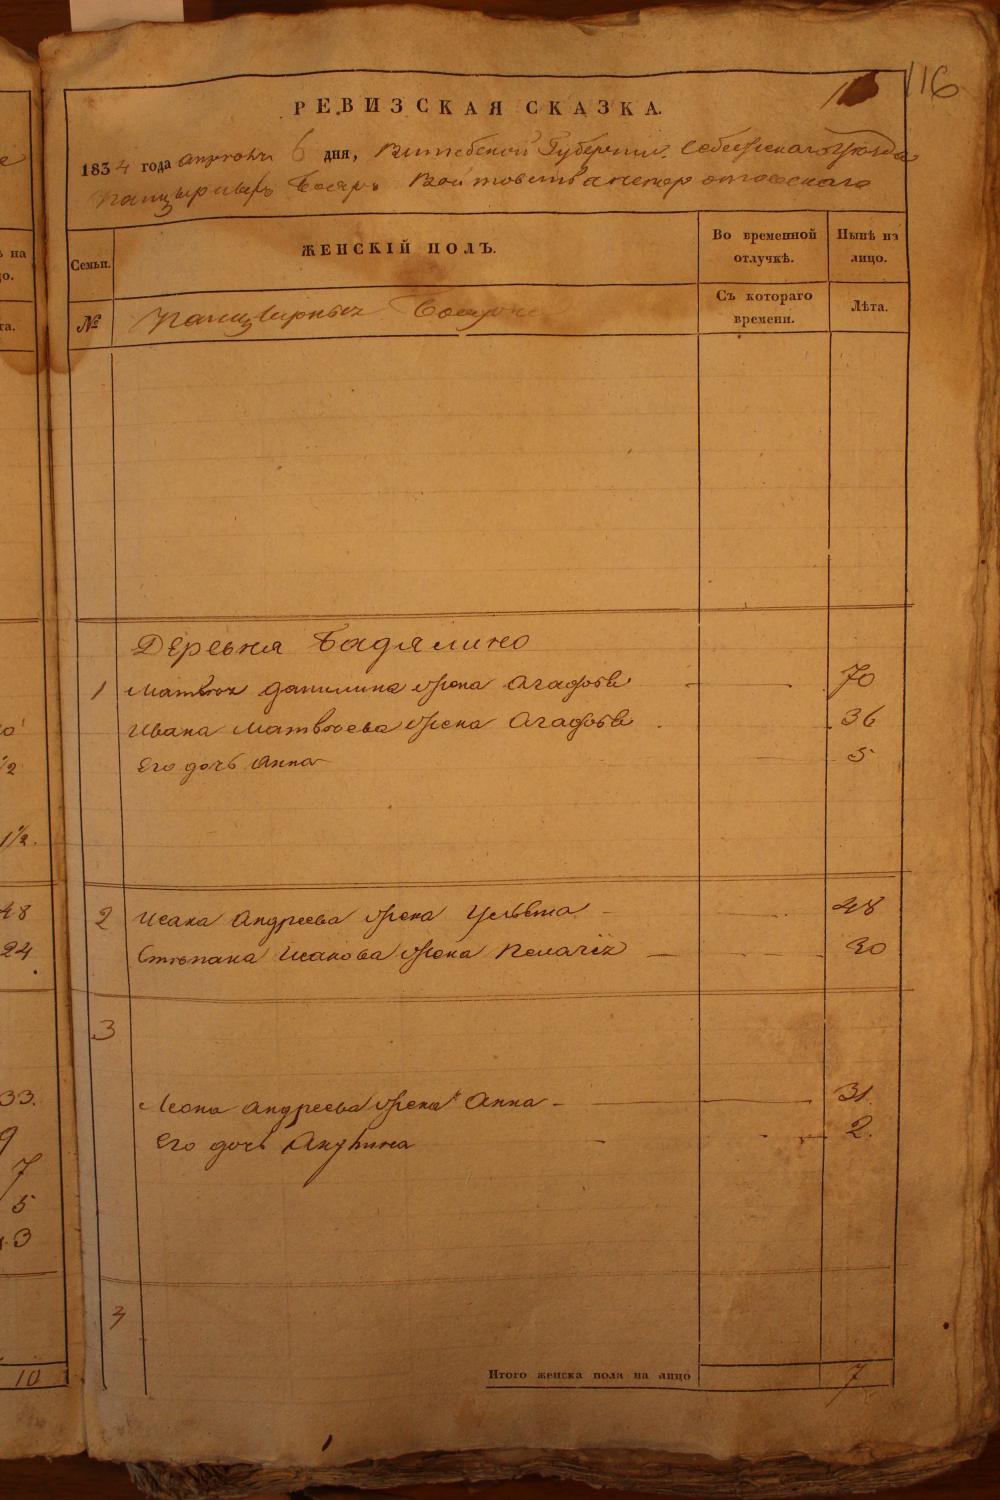 116
РЕВИЗСКАЯ СКАЗКА.
1834 года апреля 6 дня, Витебской Губернии. Себежскаго уезда
Панцырныхъ Бояръ Войтовства
ЖЕНСКІЙ ПОЛЪ.
Во временной отлучкѣ.
Нынѣ на лицо.
Семьи.
№
Панцырныхъ Бояръ
Съ котораго времени.
Лѣта.
Деревня Бадялино
1 Матвея данилина жена Агафья 70
Ивана Матвѣева жена Агафья 36
Его дочь Анна 5
2 Исака Андреева жена 48
Степана Исакова жена Пелагія 30
3
Леона Андреева жена Анна 31.
Его дочь Акулина 2.
Итого женска пола на лицо 7
на
48
24
33.
9
7
5
10